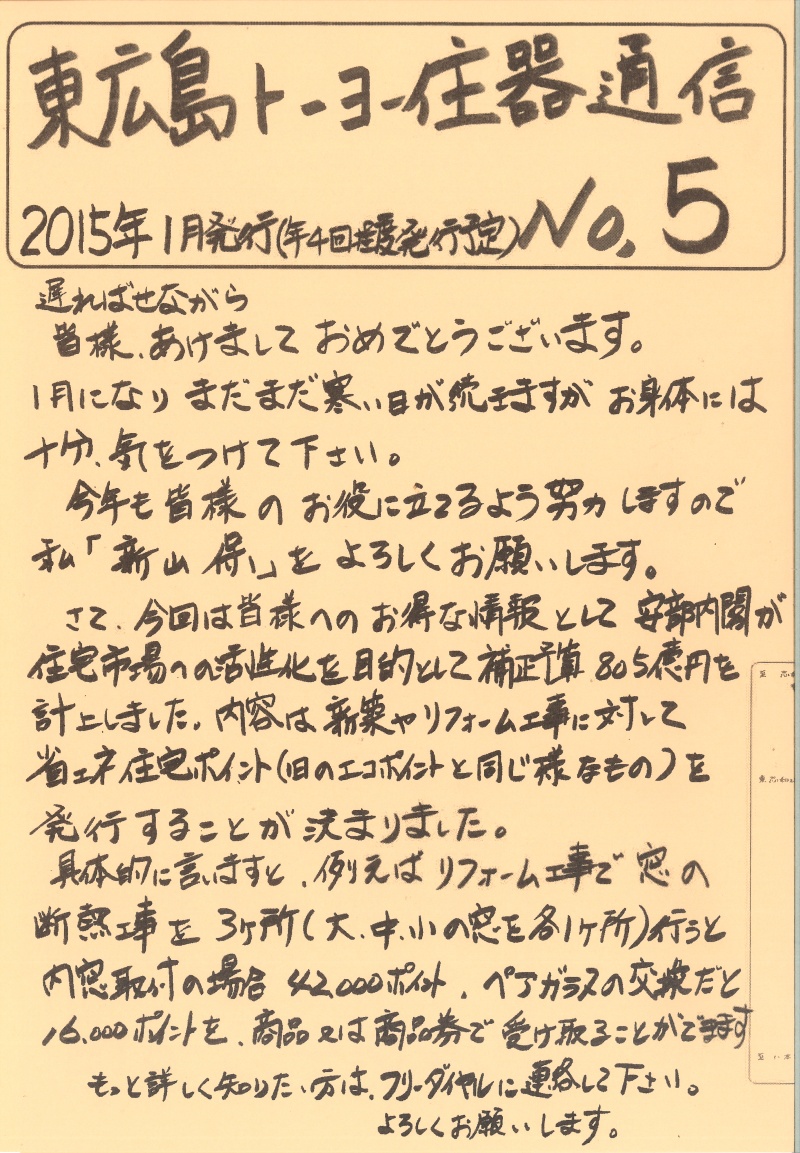 東広島トーヨー住器通信
2015年1月発行(年4回程度発行予定) No.5
遅ればせながら
皆様、あけましておめでとうございます。
1月になりまだまだ寒い日が続きますがお身体には
十分、気をつけて下さい。
今年も皆様のお役に立てるよう努力しますので
私「新山 保」をよろしくお願いします。
さて、今回は皆様へのお得な情報として安部内閣が
住宅市場への活性化を目的として補正予算805億円を
計上しました。内容は新築やリフォーム工事に対して
省エネ住宅ポイント(旧のエコポイントと同じ様なもの)を
発行することが決まりました。
具体的に言いますと、例えばリフォーム工事で窓の
断熱工事を3ヶ所(大、中、小の窓を各1ヶ所)行うと
内窓取付の場合42,000ポイント、ペアガラスの交換だと
16,000ポイントを、商品又は商品券で受け取ることができます
もっと詳しく知りたい方は、フリーダイヤルに連絡して下さい。
よろしくお願いします。